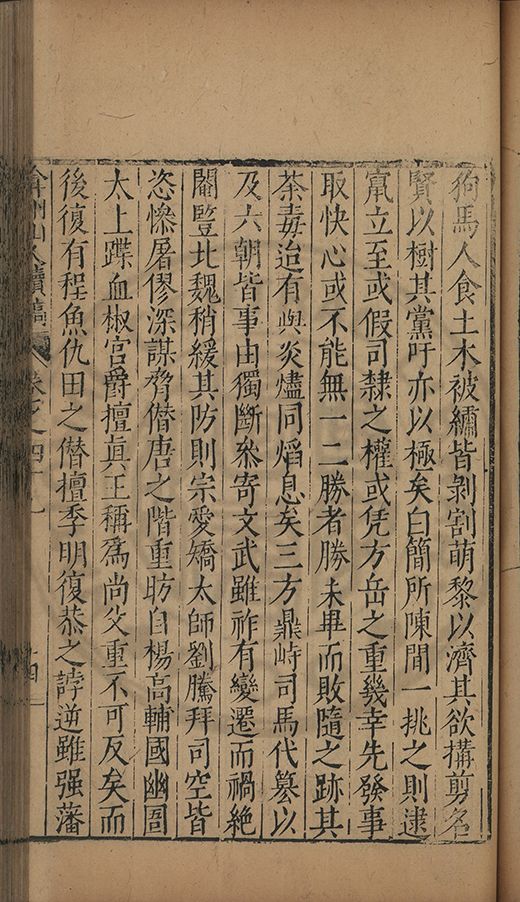 狗馬人食土木被繡皆剥割萌黎以濟其欲搆剪名
賢以樹其黨吁亦以極矣白簡所陳間一挑之則逮
竄立至或假司隸之權或凭方岳之重幾幸先發事
取快心或不能無一二勝者勝未畢而敗隨之跡其
荼毒迨有與炎燼同熖息矣三方鼎峙司馬代篡以
及六朝皆事由獨斷叅寄文武雖祚有變遷而禍絶
閹豎北魏稍緩其防則宗愛矯太師劉騰拜司空皆
恣慘屠僇深謀脅僣唐之階重昉自楊高輔國幽圄
太上蹀血椒宫爵擅真王稱爲尚父重不可反矣而
後復有程魚仇田之僣擅季明復恭之誖逆雖强藩
弇州山人續稿 卷之